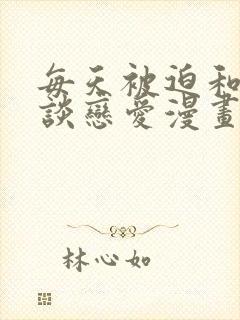 每天被迫和
談戀愛漫畫
林心如